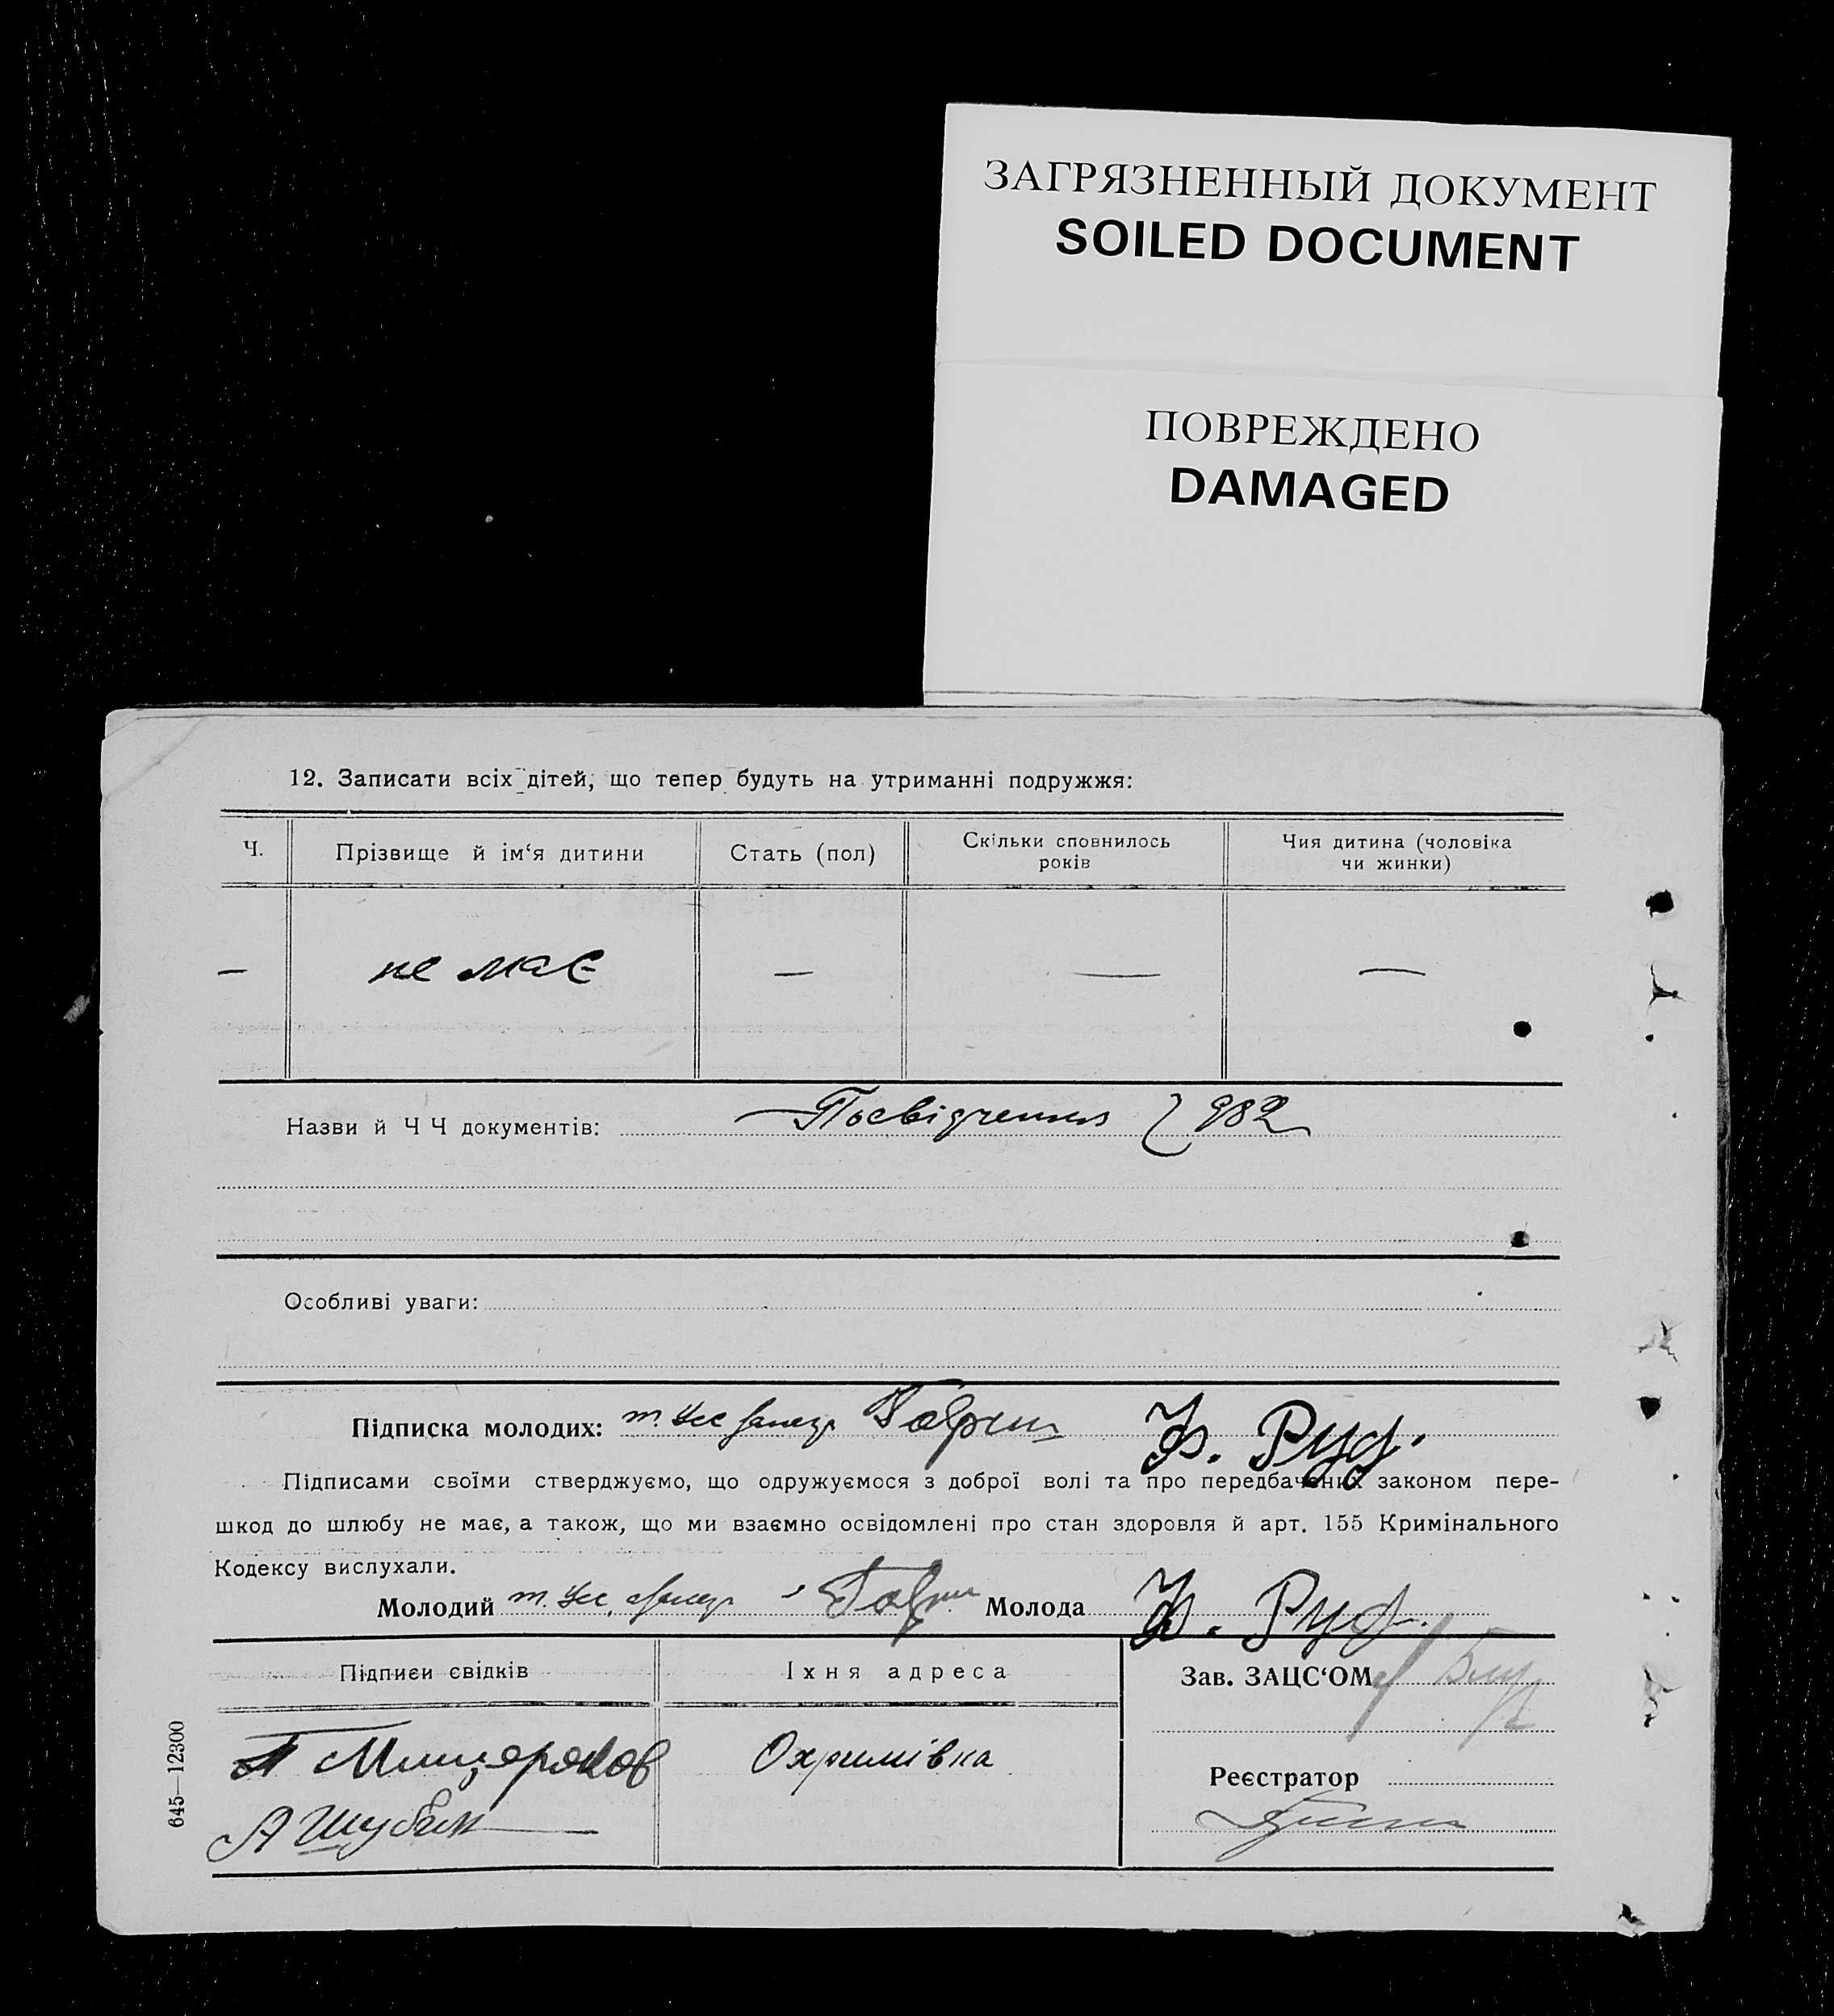 ЗАГРЯЗНЕННЫЙ ДОКУМЕНТ
SOILED DOCUMENT
ПОВРЕЖДЕНО
DAMAGED
12. Записати всіх дітей, що тепер будуть на утриманні подружжя:
Ч. Прізвище й ім‘я дитини Стать (пол) Скільки сповнилось років Чия дитина (чоловіка чи жинки)
— не має — — —
Назви й Ч Ч документів: Посвідчення 982
Особливі уваги:
Підписка молодих: Ф. Руд.
Підписами своїми стверджуємо, що одружуємося з доброї волі та про передбачених законом пере-
шкод до шлюбу не має, а також, що ми взаємно освідомлені про стан здоровля й арт. 155 Кримінального
Кодексу вислухали.
Молодий Молода Ф. Руд.
Підписи свідків Їхня адреса Зав. ЗАЦС‘ОМ
П Мищеряков Охримівка
Реєстратор
А Шубин
645—12300